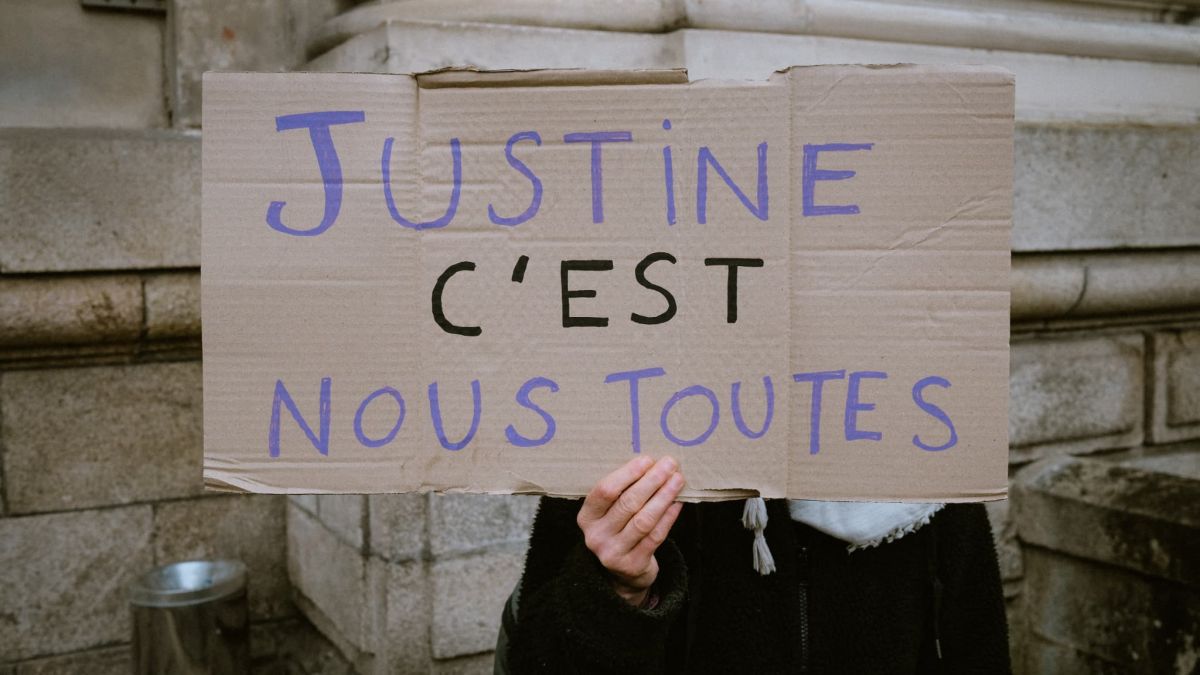 JUSTiNE
C'EST
NOUS TOUTES